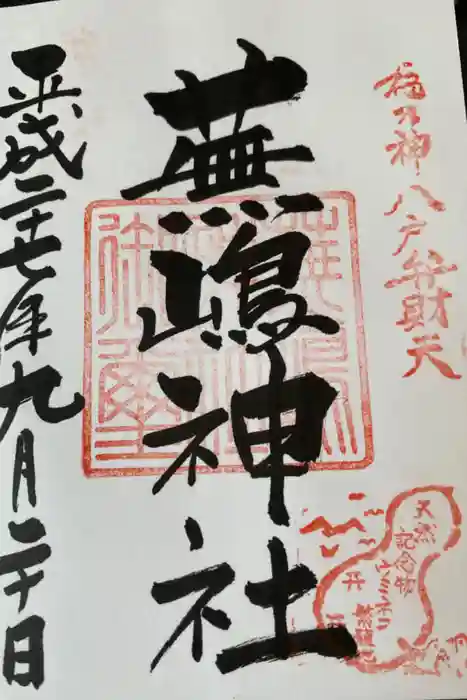 福の神 八戸弁財天
蕪嶋神社
平成二十七年九月二十日
天然
記念物
ウミネコ
繁殖地